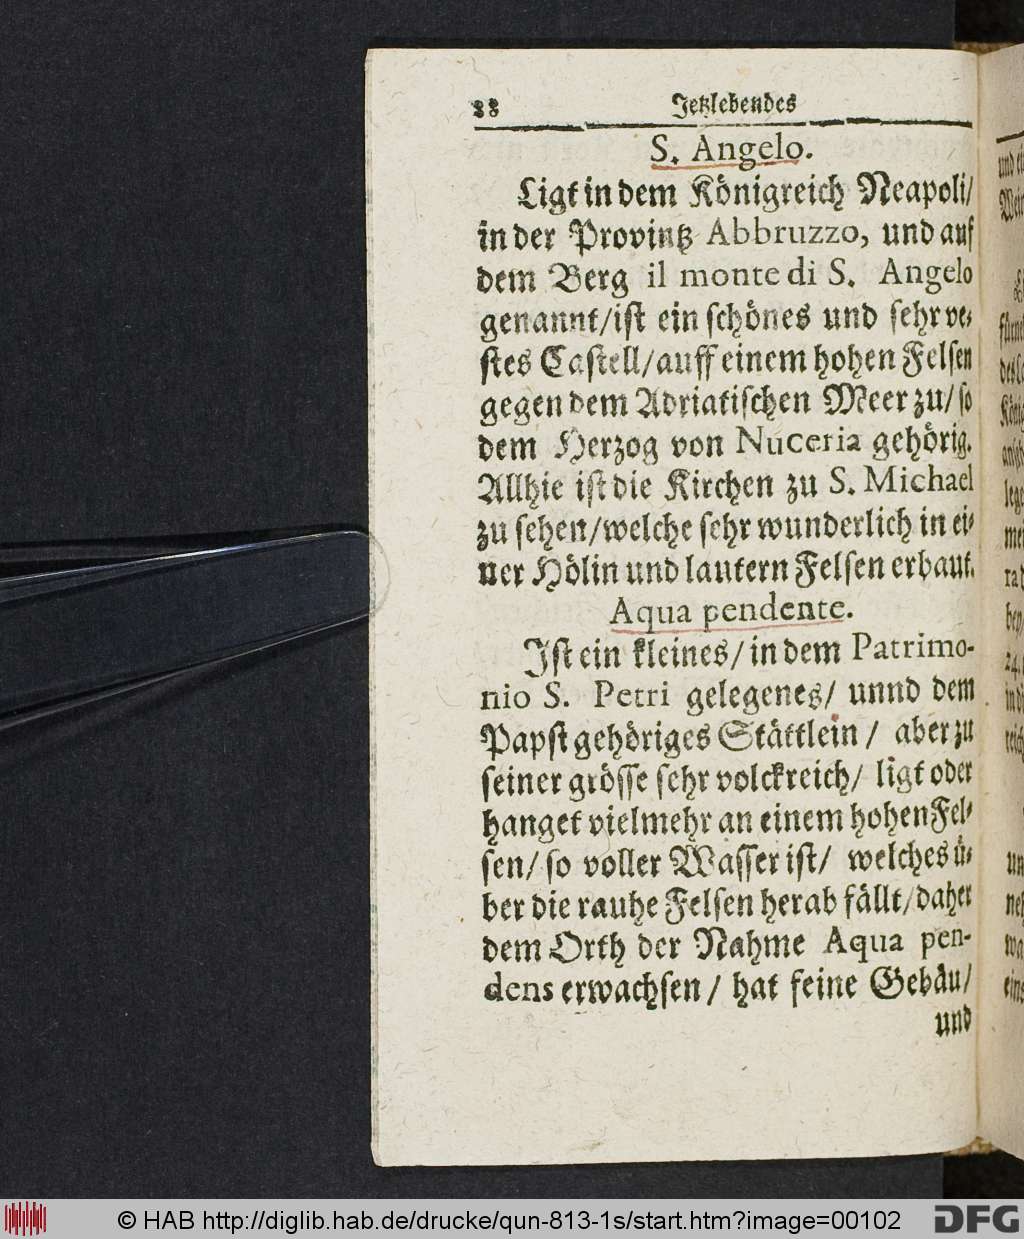 88 Jetzlebendes
S. Angelo.
Ligt in dem Königreich Neapoli/
in der Provintz Abbruzzo, und auf
dem Berg il monte di S. Angelo
genannt/ist ein schönes und sehr ve-
stes Castell/auff einem hohen Felsen
gegen dem Adriatischen Meer zu/so
dem Herzog von Nuceria gehörig.
Allhie ist die Kirchen zu S. Michael
zu sehen/welche sehr wunderlich in ei-
ner Hölin und lautern Felsen erbaut.
Aqua pendente.
Ist ein kleines/in dem Patrimo-
nio S. Petri gelegenes/ unnd dem
Papst gehöriges Stättlein/ aber zu
seiner grösse sehr volckreich/ ligt oder
hanget vielmehr an einem hohen Fel-
sen/ so voller Wasser ist/ welches ü-
ber die rauhe Felsen herab fällt/daher
dem Orth der Nahme Aqua pen-
dens erwachsen/ hat feine Gebäu/
und
© HAB http://diglib.hab.de/drucke/qun-813-1s/start.htm?image=00102
DFG